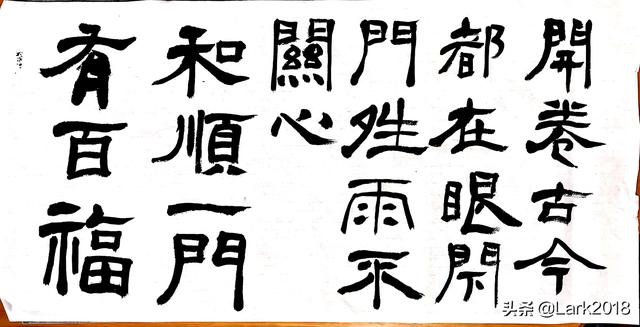 開卷古今
都在眼閉
門夝雨不
關心
和順一門
有百福
头条 @Lark2018